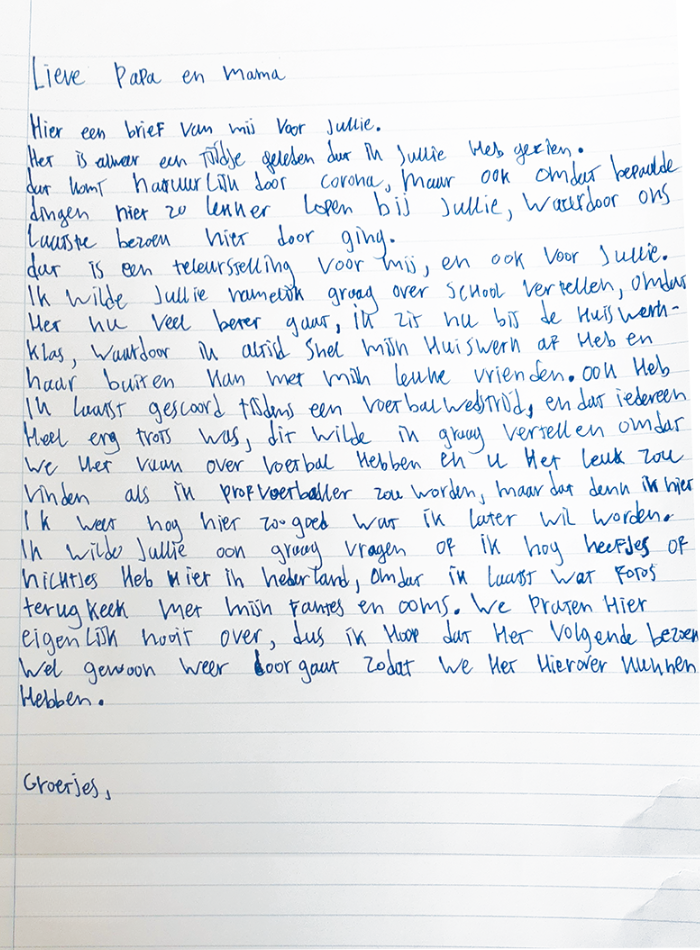 Lieve Papa en mama
Hier een brief van mij voor Jullie.
Het is alweer een tijdje geleden dat ik Jullie Heb gezien.
dat komt natuurlijk door corona, maar ook omdat bepaalde
dingen niet zo lekker lopen bij Jullie, waardoor ons
laatste bezoek niet door ging.
dat is een teleurstelling voor mij, en ook voor Jullie.
Ik wilde Jullie namelijk graag over school vertellen, omdat
Het nu veel beter gaat, ik zit nu bij de Huiswerk-
klas, waardoor ik altijd snel mijn Huiswerk af Heb en
naar buiten kan met mijn leuke vrienden. ook Heb
Ik laatst gescoord tijdens een voetbalwedstrijd, en dat iedereen
Heel erg trots was, dit wilde ik graag vertellen omdat
we Het vaak over voetbal Hebben en u Het leuk zou
vinden als ik profvoetballer zou worden, maar dat denk ik niet
Ik weet nog niet zo goed wat ik later wil worden.
Ik wilde Jullie ook graag vragen of ik nog neefjes of
nichtjes Heb Hier in nederland, omdat ik laatst wat fotos
terug keek met mijn tantes en ooms. We Praten Hier
eigenlijk nooit over, dus ik Hoop dat Het volgende bezoek
wel gewoon weer door gaat zodat we Het Hierover kunnen
Hebben.
Groetjes,